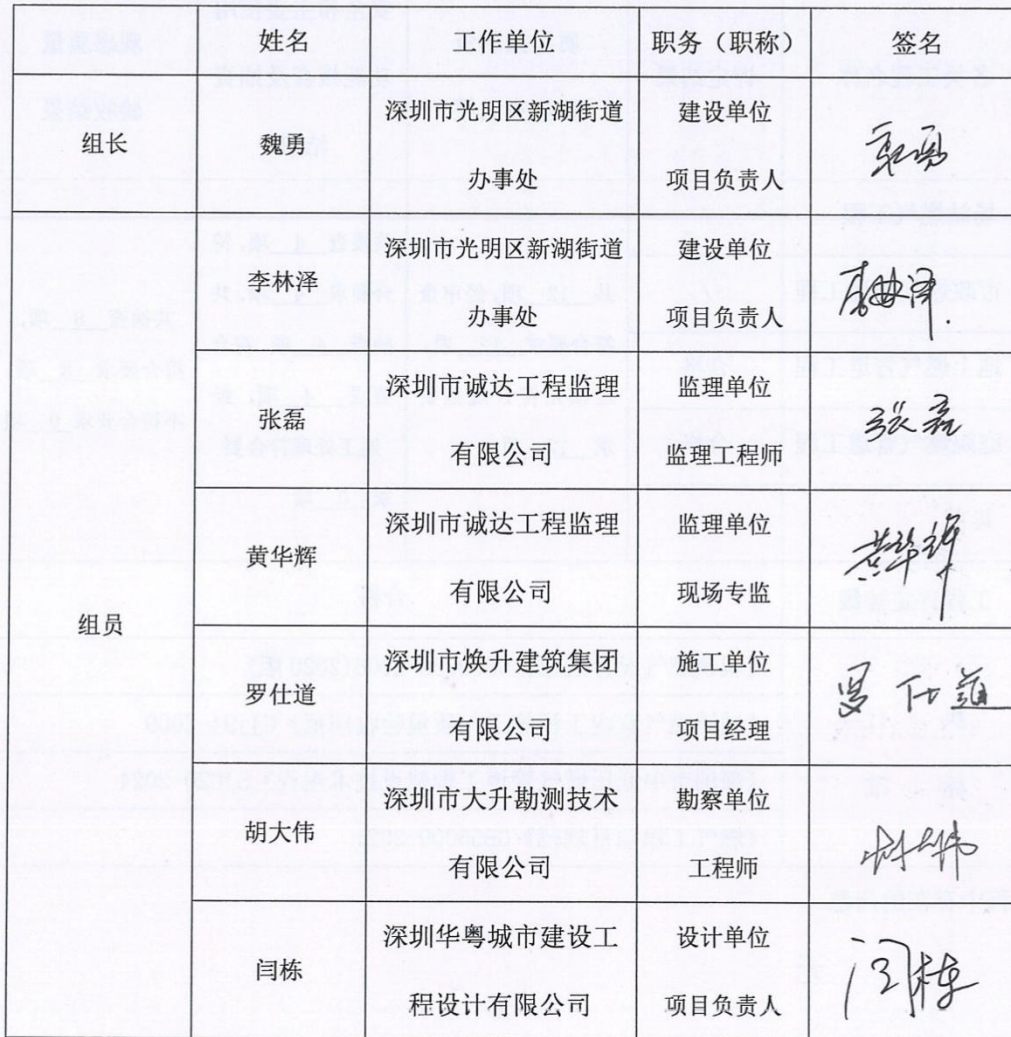 姓名 工作单位 职务（职称） 签名
组长 魏勇 深圳市光明区新湖街道办事处 建设单位 项目负责人
组员
李林泽 深圳市光明区新湖街道办事处 建设单位 项目负责人 李林泽
张磊 深圳市诚达工程监理有限公司 监理单位 监理工程师 张磊
黄华辉 深圳市诚达工程监理有限公司 监理单位 现场专监 黄华辉
罗仕道 深圳市焕升建筑集团有限公司 施工单位 项目经理 罗仕道
胡大伟 深圳市大升勘测技术有限公司 勘察单位 工程师 胡大伟
闫栋 深圳华粤城市建设工程设计有限公司 设计单位 项目负责人 闫栋